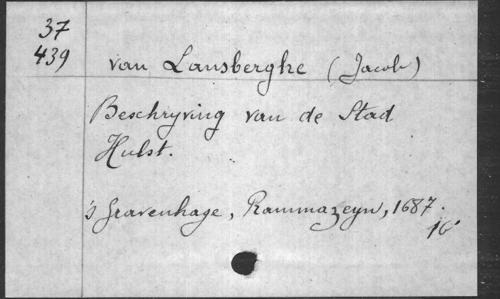 37
439
van Lansberghe (Jacob)
Beschryving van de Stad
Hulst.
's Gravenhage, Rammazeyn, 1687.
16°